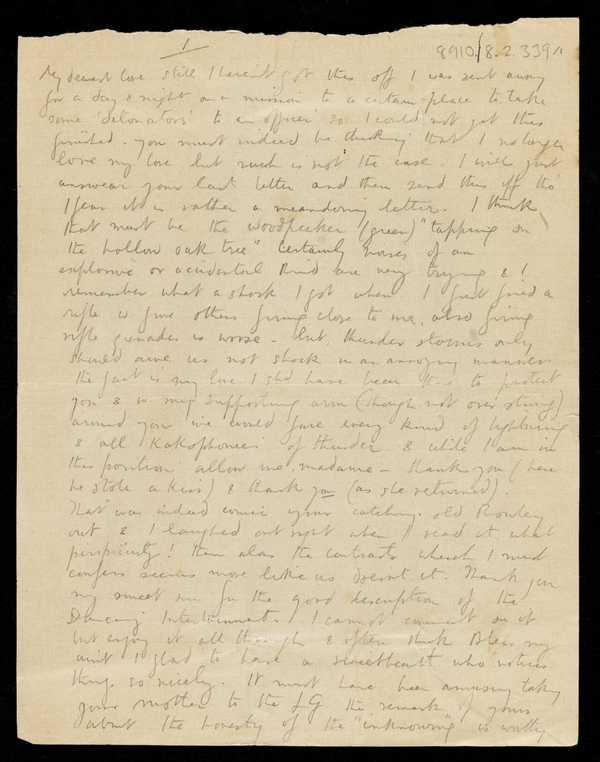 1
8910/8.2.339
My dearest love still I haven't got this off I was sent away
for a day & night on a mission to a certain place to take
some 'detonators' to an officer so I could not get this
finished. You must indeed be thinking that I no longer
love my love but such is not the case. I will just
answear your last letter and then send this off tho'
I fear it is rather a meandering letter. I think
that must be the woodpecker (green) "tapping on
the hollow oak tree" Certainly noises of an
explosive or accidental kind are very trying & I
remember what a shock I got when I first fired a
rifle & five others firing close to me, also firing
rifle grenades is worse – but thunder storms only
should awe us not shock in an annoying manner
the fact is my love I shd have been there to protect
you & so my supporting arm (though not over strong)
around you we could face every kind of lightning
& all Kakophonies of thunder & while I am in
this position allow me, madame – thank you (here
he stole a kiss) & thank you (as she returned).
That was indeed comic your catching old Rowley
out & I laughed out right when I read it, what
perspicuity! then alas the contrasts which I must
confess seems more like us doesnt it. Thank you
my sweet one for the good description of the
Dancing Entertainment I cannot comment on it
but enjoy it all through & often think Bless my
aint I glad to have a sweetheart who notices
things so nicely. It must have been amusing taking
your mother to the the remark of yours
about the honesty of the "unknowing" is witty